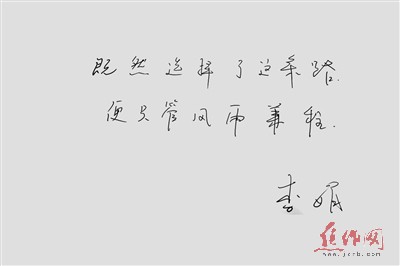 既然选择了这条路.
便只管风雨兼程.
李娟
焦作网
www.jzrb.com